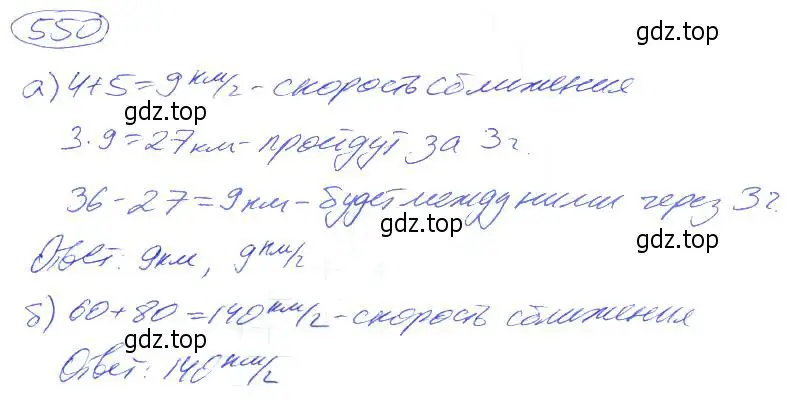 550
gdz.top
а) 4+5=9 км/ч - скорость сближения
gdz.top
3·9=27 км - пройдут за 3 ч.
gdz.top
36-27=9 км - будет между ними через 3 ч.
gdz.top
gdz.top
Ответ: 9 км, 9 км/ч
gdz.top
б) 60+80=140 км/ч - скорость сближения
gdz.top
Ответ: 140 км/ч
gdz.top